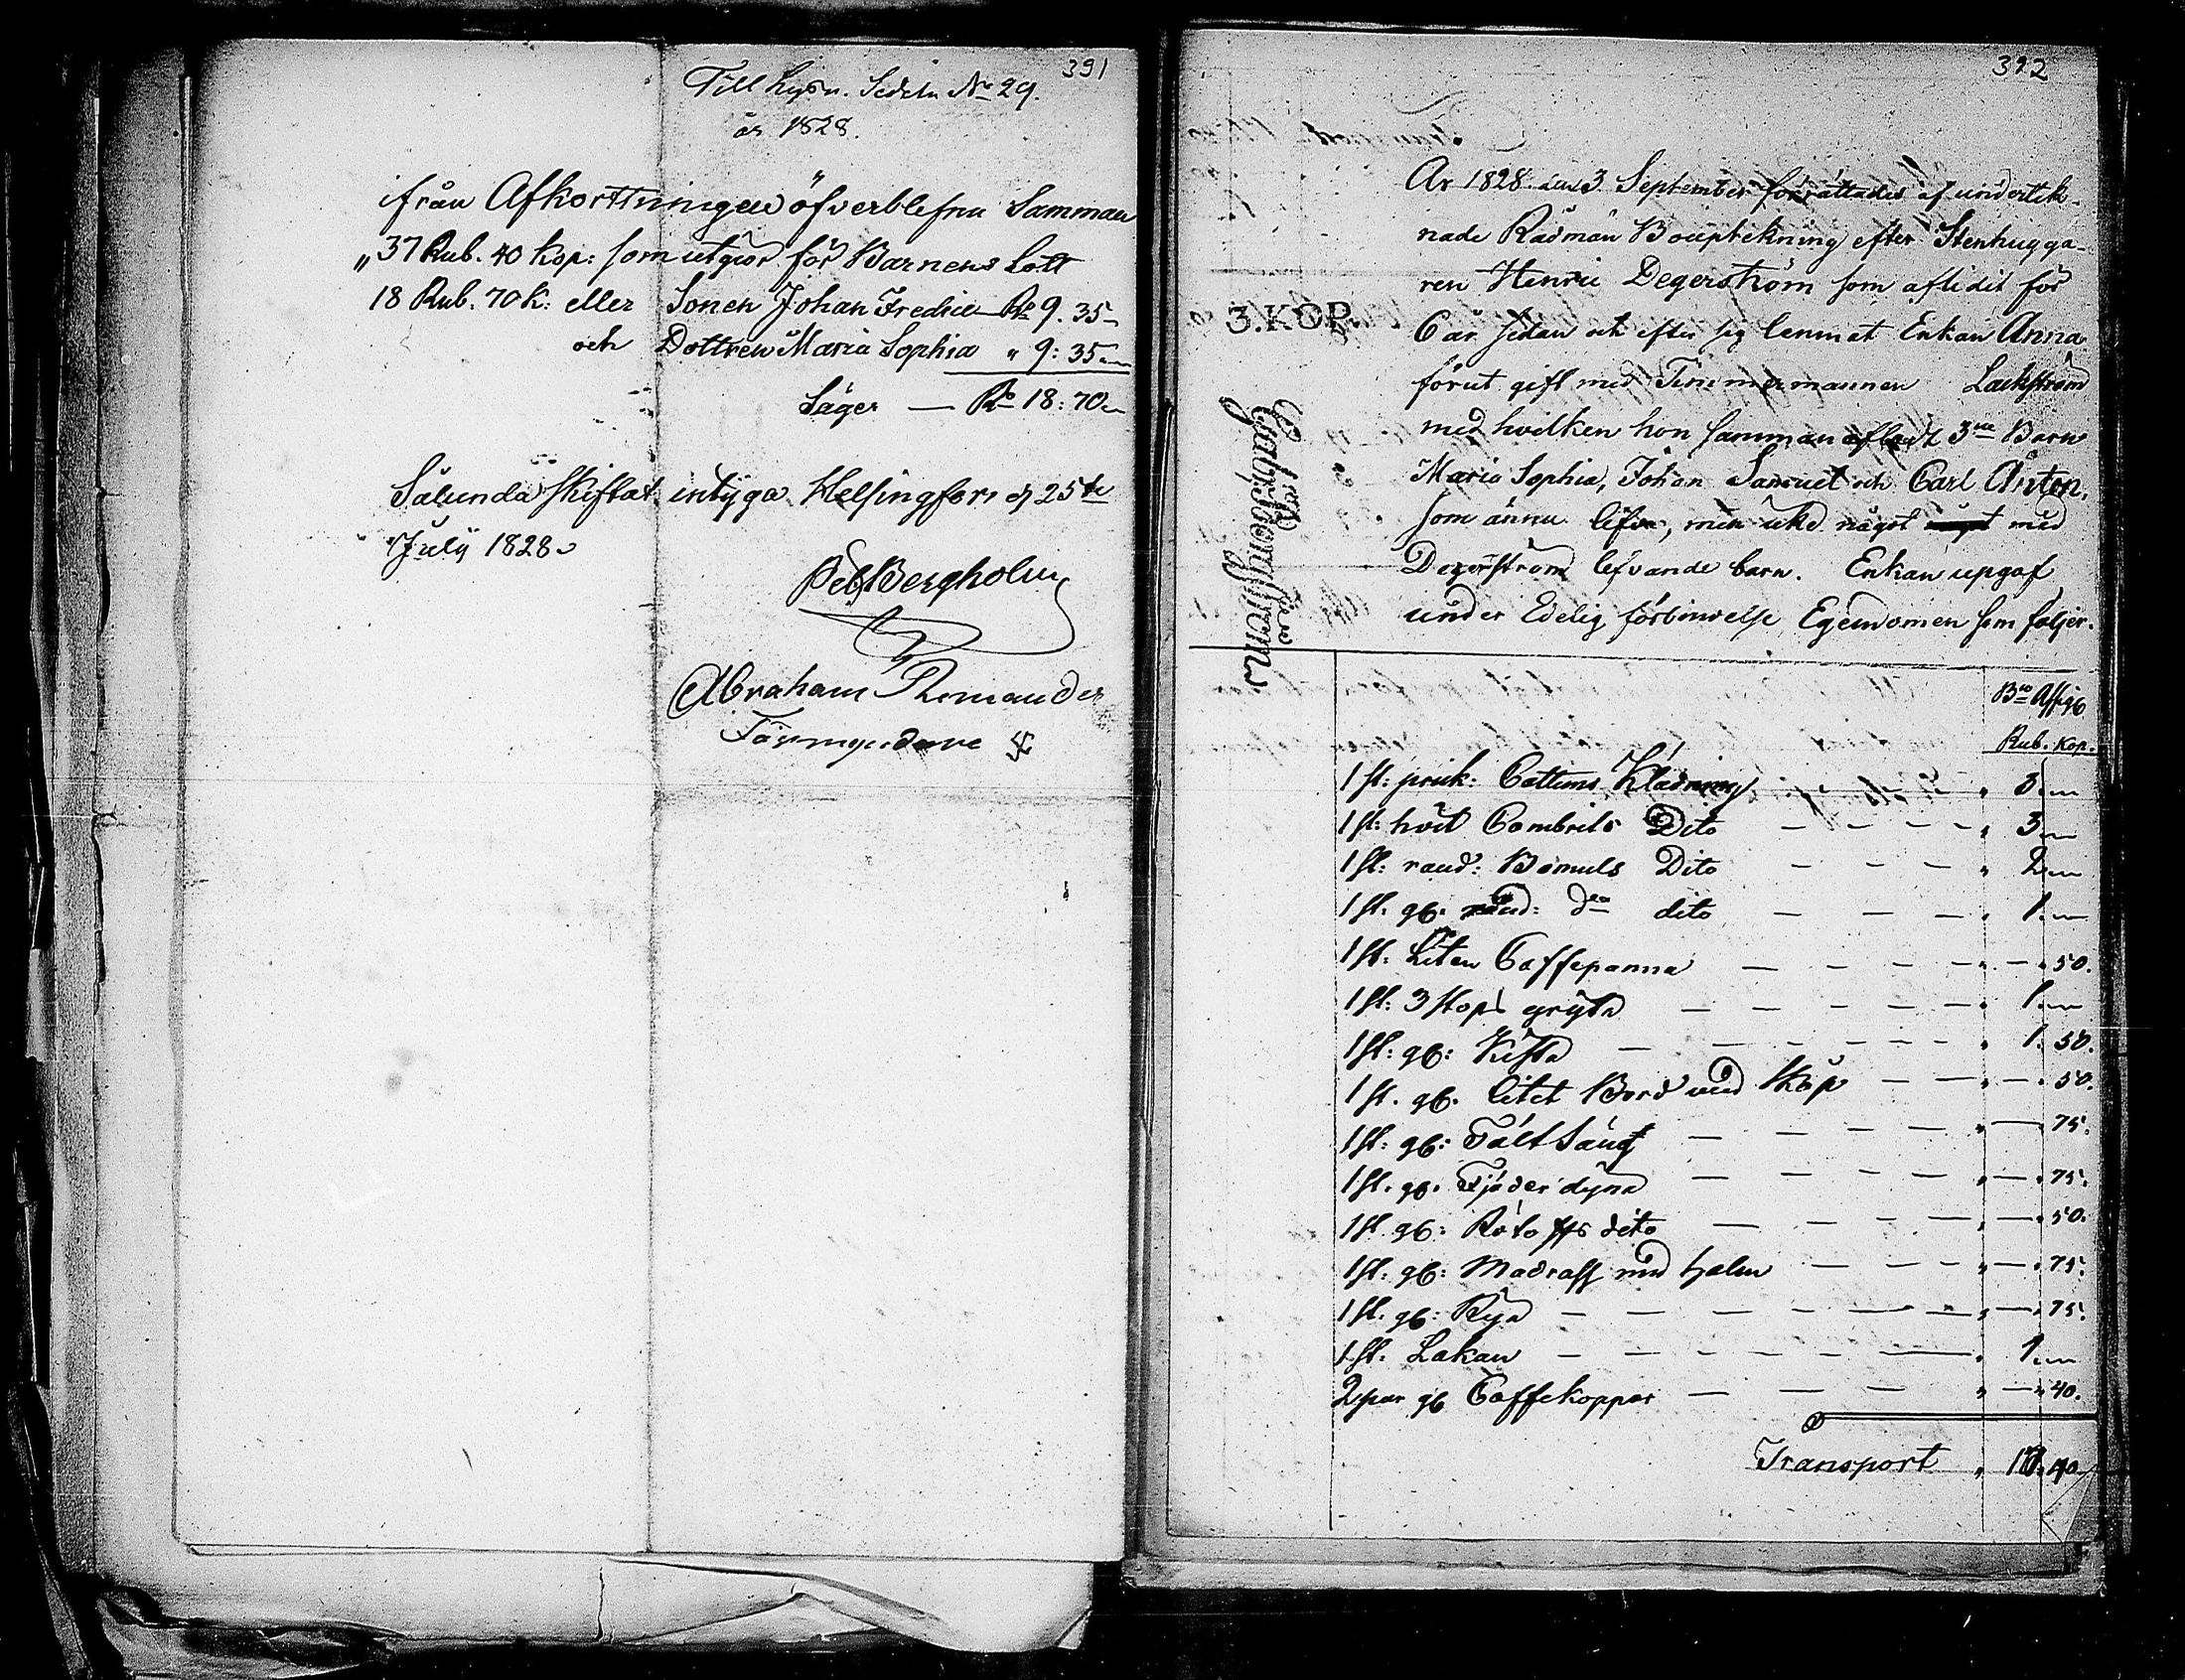 391
Till Lysn. Sedeln No 29.
år 1828.
ifrån Afkortningen öfverblefne Summan
„37 Rub. 40 Kop: som utgiör för Barnens Lott
18 Rub. 70 K: eller Sonen Johan Fredric — Ro 9. 35 —
och Dottren Maria Sophia „ 9: 35 —
Säger — Ro 18: 70 —
Sålunda skiftat intyga Helsingfors d 25te
July 1828
Pet Bergholm
Abraham
Förmyndare
392
År 1828 den 3 September förrättades af underteck-
nade Rådmän Bouptekning efter Stenhugga-
ren Henric Degerström som aflidit för
6 år sedan och efter sig lemnat Enkan Anna
förut gift med Timmermannen Lackström
med hvilken hon samman aflat 3ne Barn
Maria Sophia, Johan Samuel och Carl Anton,
som ännu lefva, men icke något med
Degerström lefvande barn. Enkan upgaf
under Edelig förbindelse Egendomen som följer.
3. KOP.
Bco Assig
Rub. Kop.
1 st: prick: Cattuns Klädning „ 3. —
1 st: hvit Cambriks Dito — — — — „ 3 —
1 st: rand: Bomuls Dito — — — „ 2 —
1 st. gl. rånd: do dito — — — „ 1. —
1 st: Liten Caffepanna — — — — — „ — „ 50.
1 st: 3 stops gryta — — — — — „ 1. —
1 st: gl: Kista — — — — — — „ 1. 50.
1 st. gl. litet Bord med Skåp — — — „ — . 50.
1 st: gl: Fält Säng — — — — — „ — . 75.
1 st. gl. Fjäder dyna — — — — — „ — . 75.
1 st gl: dito — — — — — „ — . 50.
1 st: gl: Madrass med halm — — — — „ — . 75.
1 st. gl: Rya — — — — — — „ — . 75.
1 st: Lakan — — — — — — „ 1. —
2 par gl Caffekoppar — — — — „ — „ 40.
Transport „ 17. 40